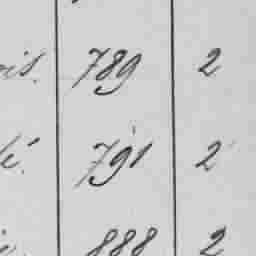 789 2
791 2
888 2